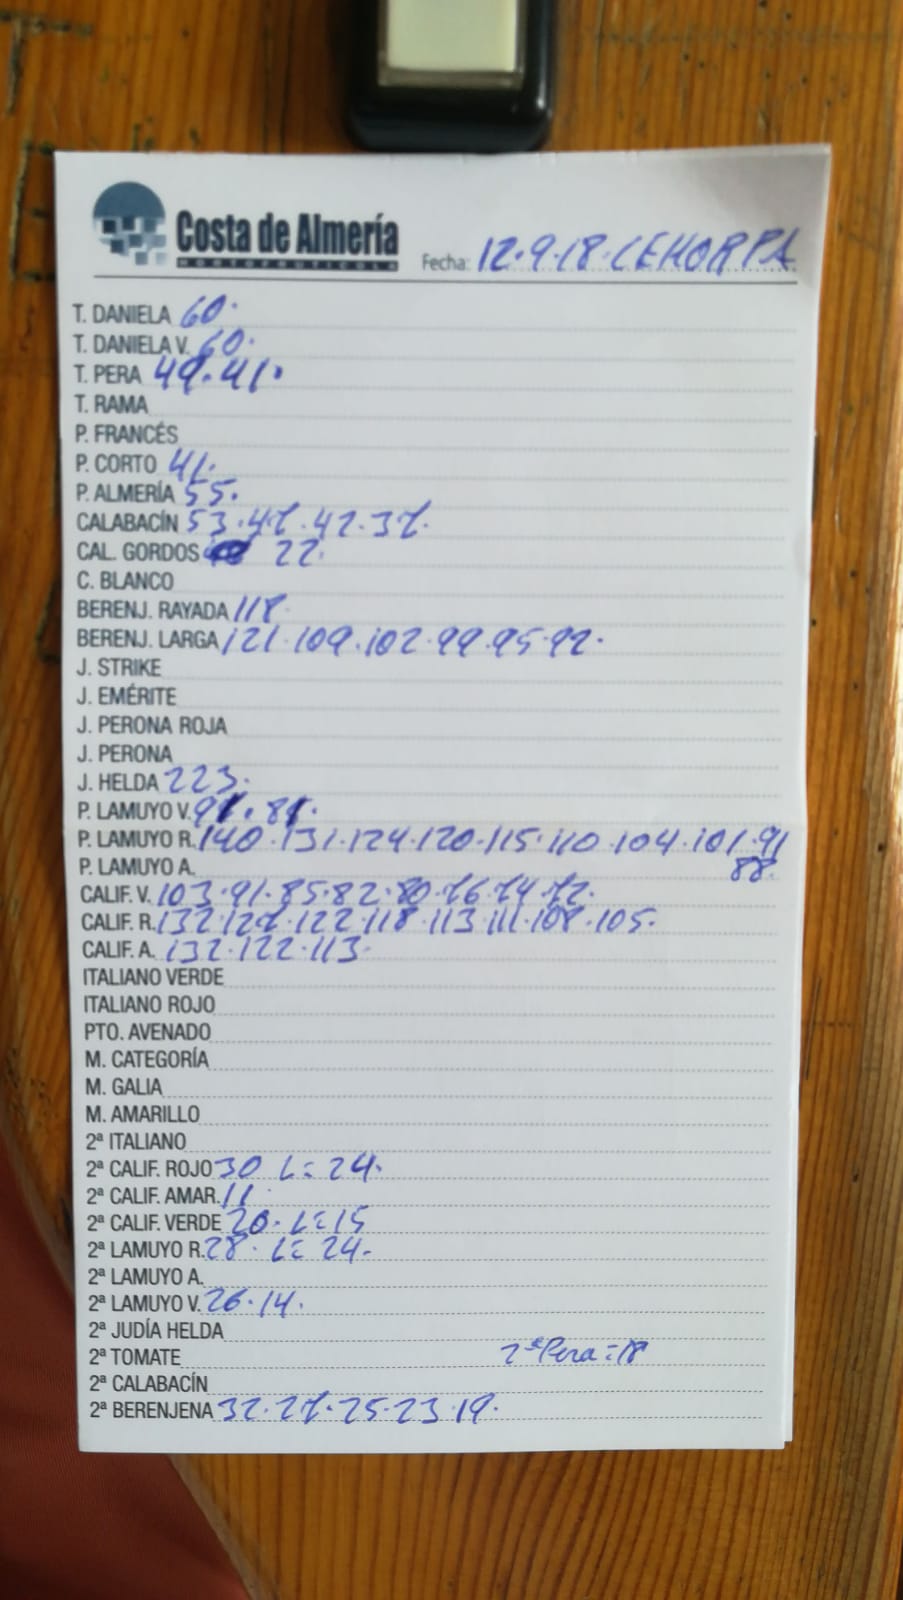 Costa de Almería
HORTOFRUTÍCOLA
Fecha: 12.9.18. CEHORPA
T. DANIELA 60.
T. DANIELA V. 60.
T. PERA 49.41.
T. RAMA
P. FRANCÉS
P. CORTO 41.
P. ALMERÍA 55.
CALABACÍN 53.47.42.37.
CAL. GORDOS 22.
C. BLANCO
BERENJ. RAYADA 118.
BERENJ. LARGA 121.109.102.99.95.92.
J. STRIKE
J. EMÉRITE
J. PERONA ROJA
J. PERONA
J. HELDA 223.
P. LAMUYO V. 91.81.
P. LAMUYO R. 140.131.124.120.115.110.104.101.91
88.
P. LAMUYO A.
CALIF. V. 103.91.85.82.80.76.74.72.
CALIF. R. 132.127.122.118.113.111.108.105.
CALIF. A. 132.122.113.
ITALIANO VERDE
ITALIANO ROJO
PTO. AVENADO
M. CATEGORÍA
M. GALIA
M. AMARILLO
2ª ITALIANO
2ª CALIF. ROJO 30 L= 24.
2ª CALIF. AMAR. 11.
2ª CALIF. VERDE 20. L=15
2ª LAMUYO R. 28. L= 24.
2ª LAMUYO A.
2ª LAMUYO V. 26.14.
2ª JUDÍA HELDA
2ª TOMATE 2ª Pera = 18
2ª CALABACÍN
2ª BERENJENA 32.27.25.23.19.